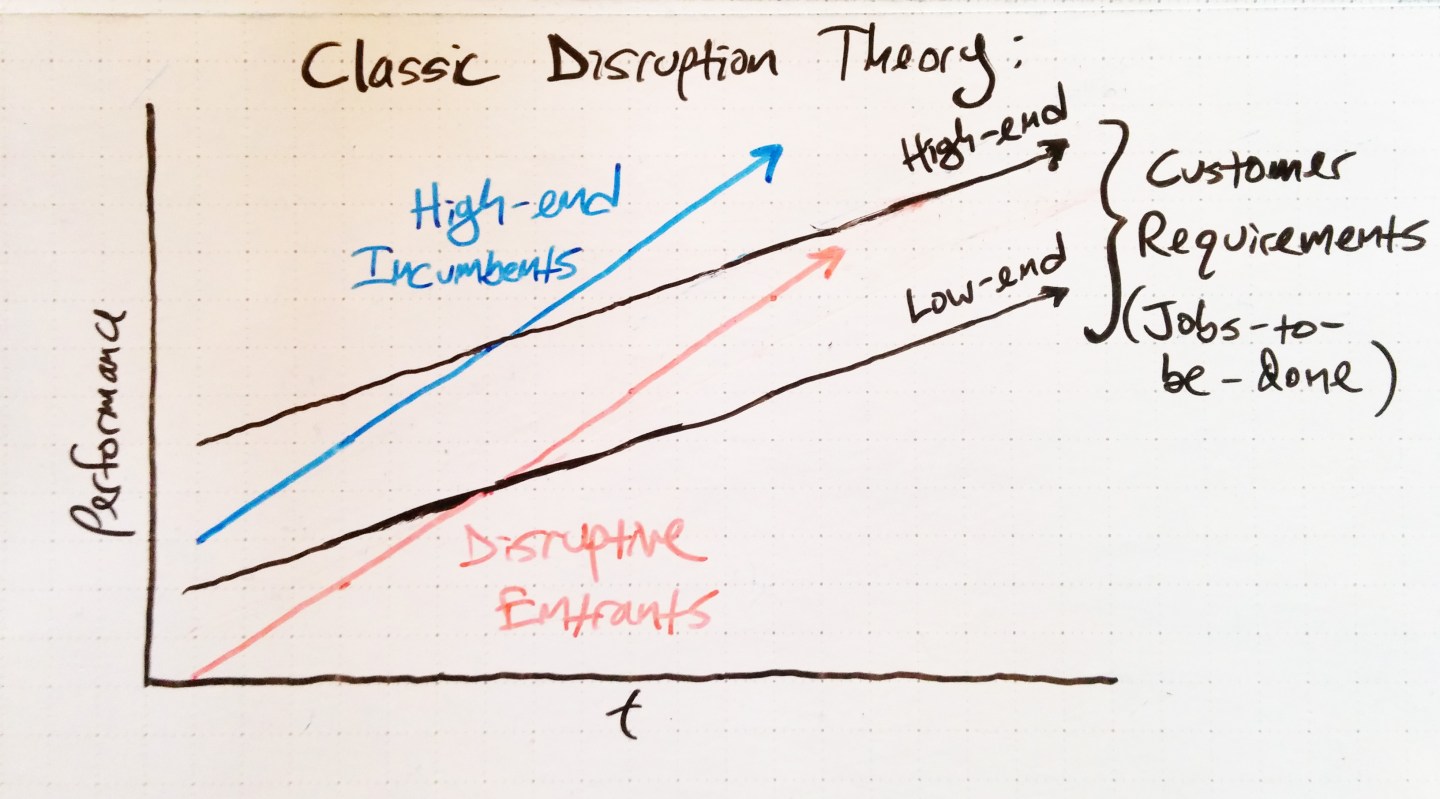 Classic Disruption Theory:
High-end
Incumbents
High-end
Low-end
Customer
Requirements
(Jobs-to-
be-done)
Performance
Disruptive
Entrants
t